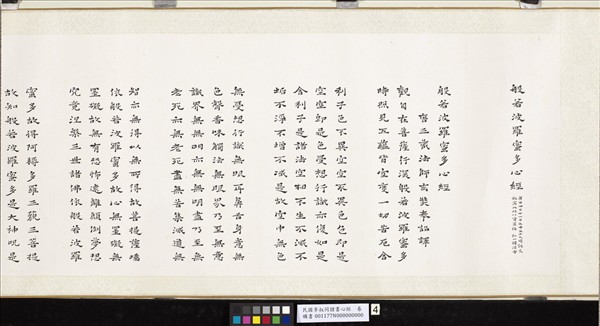 般若波羅蜜多心經
般若波羅蜜多心經
唐三藏法師玄奘奉詔譯
觀自在菩薩行深般若波羅蜜多
時照見五蘊皆空度一切苦厄舍
利子色不異空空不異色色即是
空空即是色受想行識亦復如是
舍利子是諸法空相不生不滅不
垢不淨不增不減是故空中無色
無受想行識無眼耳鼻舌身意無
色聲香味觸法無眼界乃至無意
識界無無明亦無無明盡乃至無
老死亦無老死盡無苦集滅道無
智亦無得以無所得故菩提薩埵
依般若波羅蜜多故心無罣礙無
罣礙故無有恐怖遠離顛倒夢想
究竟涅槃三世諸佛依般若波羅
蜜多故得阿耨多羅三藐三菩提
故知般若波羅蜜多是大神咒是
民國李叔同隸書心經 卷
購書 001177N000000000
4